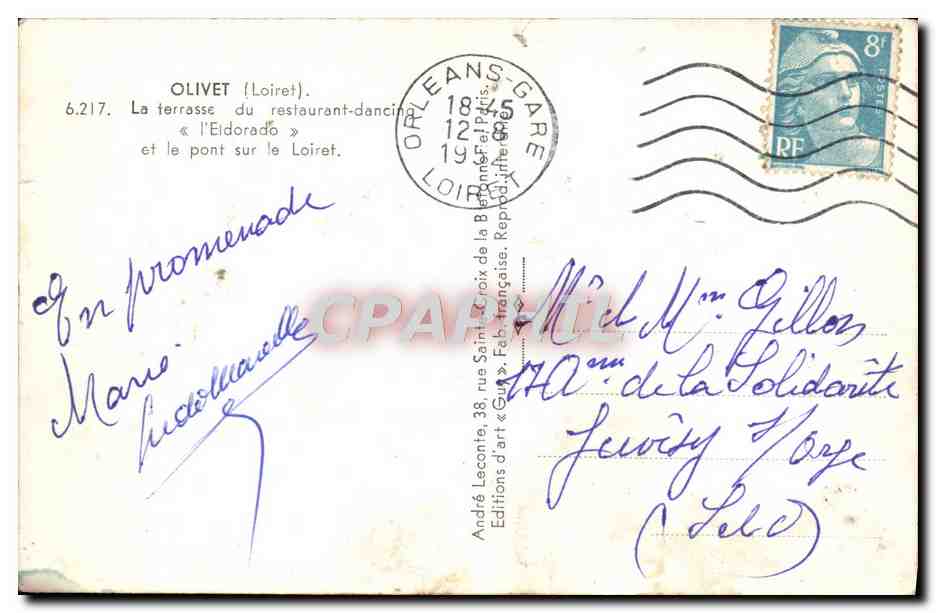 OLIVET (Loiret).
6.217. La terrasse du restaurant-dancing
« l'Eldorado »
et le pont sur le Loiret.
En promenade
Marie
ORLEANS-GARE
18-45
12-8
195
LOIRET
8f
POSTES
RF
André Leconte, 38, rue Sainte-Croix de la Bretonnerie, Paris.
Editions d'art « Guy ». Fab. française. Reprod. interdite.
CPAPHIL
Mr et Mme Gillon
17 Anne de la Solidarité
Juvisy s/orge
(S et O)